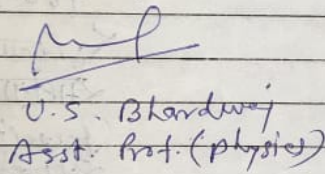 U.S. Bhardwaj
Asst. Prof. (physics)